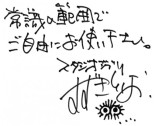 常識の範囲で
ご自由にお使い下さい。
スタジオジブリ
鈴木敏夫